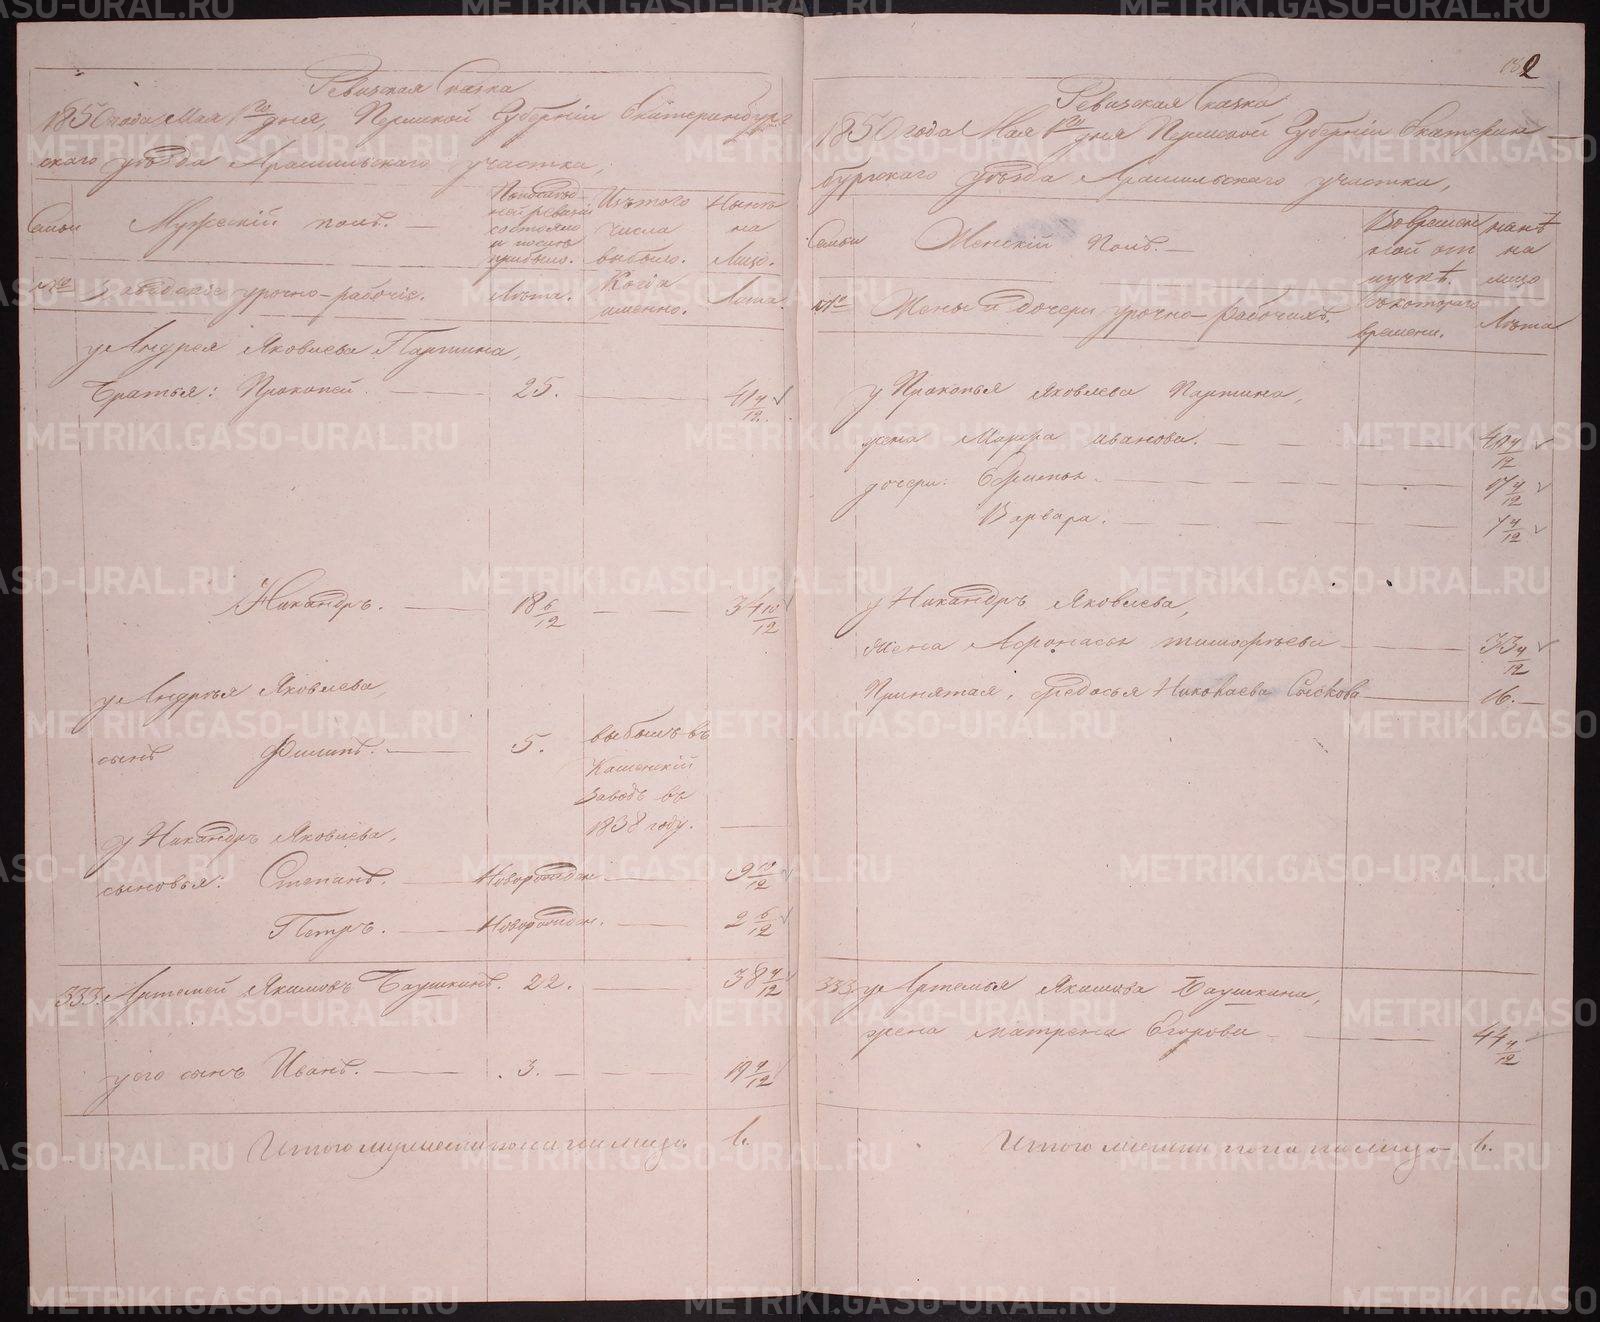 Ревизская Сказка
1850 года Мая 1го дня, Пермской Губернiи Екатеринбург
скаго уѣзда Арамильскаго участка,
Семьи
Мужескiй полъ.
По последней ревизiи состояло и после прибыло.
Изъ того числа выбыло.
Нынѣ на лицо.
№
Заводскiе урочно-рабочiе.
Лѣта.
Когда именно.
Лѣта.
у Андрея Яковлева Партина,
братья: Прокопей. 25. 41 4/12
Никандръ. 18 6/12 34 10/12
у Андрея Яковлева,
сынъ Филипъ. 5. выбылъ въ
Каменскiй
заводъ въ
1838 году.
у Никандръ Яковлева,
сыновья: Степанъ. Новорожден. 9 10/12
Петръ. Новорожден. 2 6/12
333. Артемей Якимовъ Баушкинъ. 22. 38 4/12
у его сынъ Иванъ. 3. 19 4/12
Итого мужеска пола на лицо 6.
132
Ревизская Сказка
1850 года Мая 1го дня Пермской Губернiи Екатерин
бургскаго уѣзда Арамильскаго участка,
Семьи
Женскiй Полъ.
Во временной отлучкѣ.
нынѣ на лицо
№
Жены и дочери урочно-рабочихъ.
Съ котораго времени.
Лѣта
у Прокопья Яковлева Партина,
жена Марфа иванова. 41 4/12
дочери: 17 4/12
Варвара. 7 4/12
у Никандръ Яковлева,
жена Афонасья тимофѣева 33 4/12
Принятая, Федосья Николаева Сыскова 16.
333. у Артемья Якимова Баушкина,
жена матрена Егорова 44 4/12
Итого женска пола на лицо 6.
METRIKI.GASO-URAL.RU